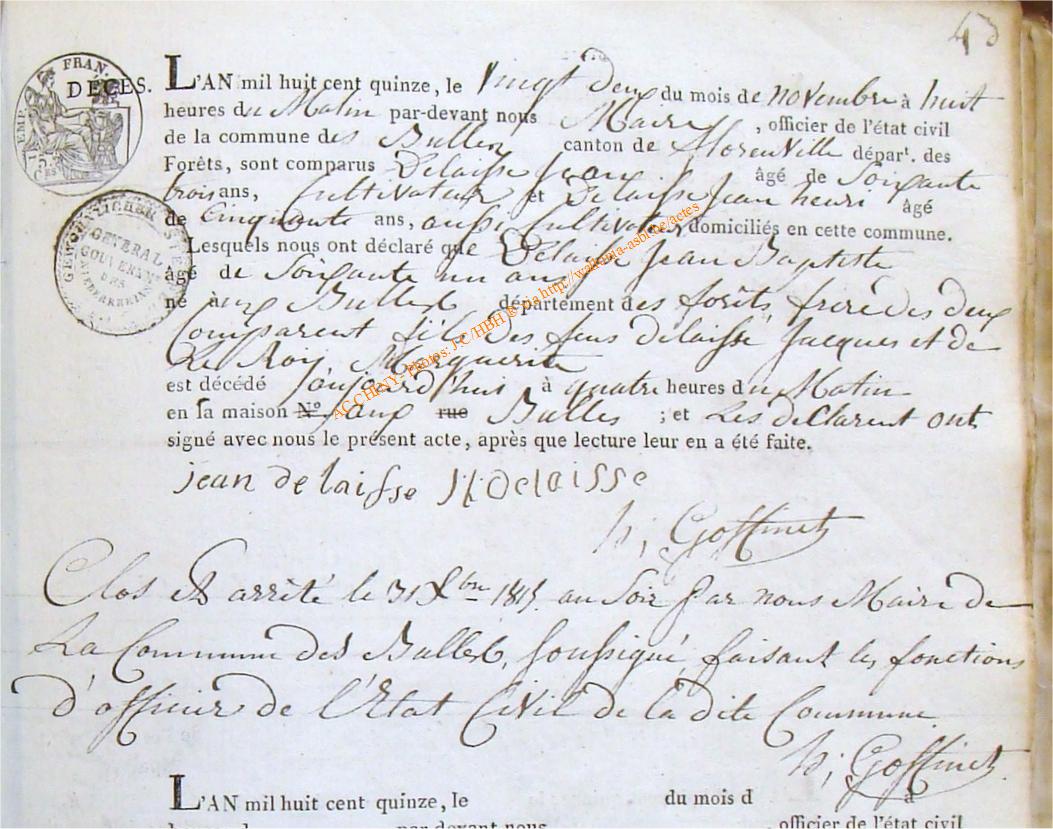 43
FRAN.
DÉCÈS. L'AN mil huit cent quinze, le Vingt deux du mois de novembre à huit
heures du Matin par-devant nous Maire , officier de l'état civil
de la commune des Bulles canton de florenville dépar'. des
Forêts, sont comparus Delaisse Jean âgé de Soixante
trois ans, Cultivateur et Delaisse Jean henri âgé
de Cinquante ans, aussi Cultivateur domiciliés en cette commune.
Lesquels nous ont déclaré que Delaisse Jean Baptiste
âgé de Soixante un ans
né aux Bulles département des forêts, frere des deux
Comparent fils des feus delaisse Jacques et de
Le Roy Marguerite
est décédé aujourd'huit à quatre heures du Matin
en la maison N.º aux rue Bulles ; et Les declarent ont
signé avec nous le présent acte, après que lecture leur en a été faite.
jean delaisse JhDelaisse
h; Goffinet
Clos Et arrêté le 31 Xbre 1815. au Soir par nous Maire de
La Commune des Bulles, soussigné faisant les fonctions
d'officier de l'Etat Civil de la dite Commune
h; Goffinet
L'AN mil huit cent quinze, le du mois d à
par-devant nous , officier de l'état civil
GENERAL
GOUVERNEM
DES
ACCHINY - Photos: J-C/HBH @ via http://wallonia-asbl.be/actes